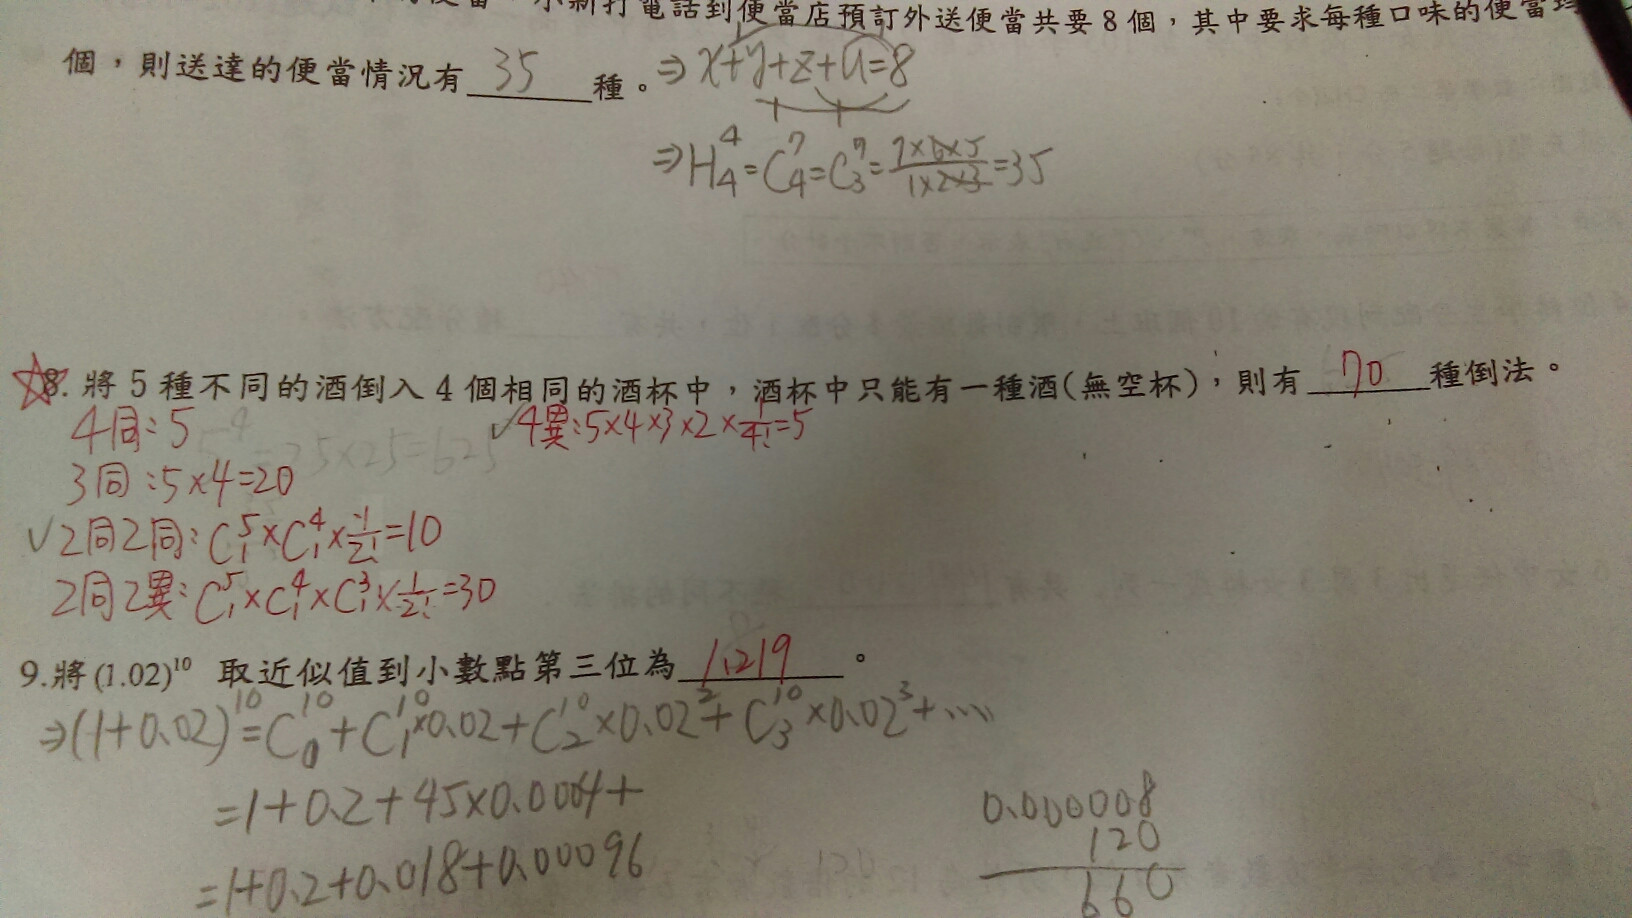 小新打電話到便當店預訂外送便當共要8個，其中要求每種口味的便當均
個，則送達的便當情況有 35 種。⇒ x+y+z+u=8
⇒ H⁴₄=C⁷₄=C⁷₃=7×6×5/1×2×3=35
☆8. 將5種不同的酒倒入4個相同的酒杯中，酒杯中只能有一種酒(無空杯)，則有 70 種倒法。
4同:5 ✓4異:5×4×3×2×1/4!=5
5⁴=25×25=625
3同:5×4=20
✓2同2同:C⁵₁×C⁴₁×1/2!=10
2同2異:C⁵₁×C⁴₁×C³₁×1/2!=30
9.將(1.02)¹⁰ 取近似值到小數點第三位為 1.219 。
⇒(1+0.02)¹⁰=C¹⁰₀+C¹⁰₁×0.02+C¹⁰₂×0.02²+C¹⁰₃×0.02³+....
=1+0.2+45×0.0004+
=1+0.2+0.018+0.00096
0.000008
120
660